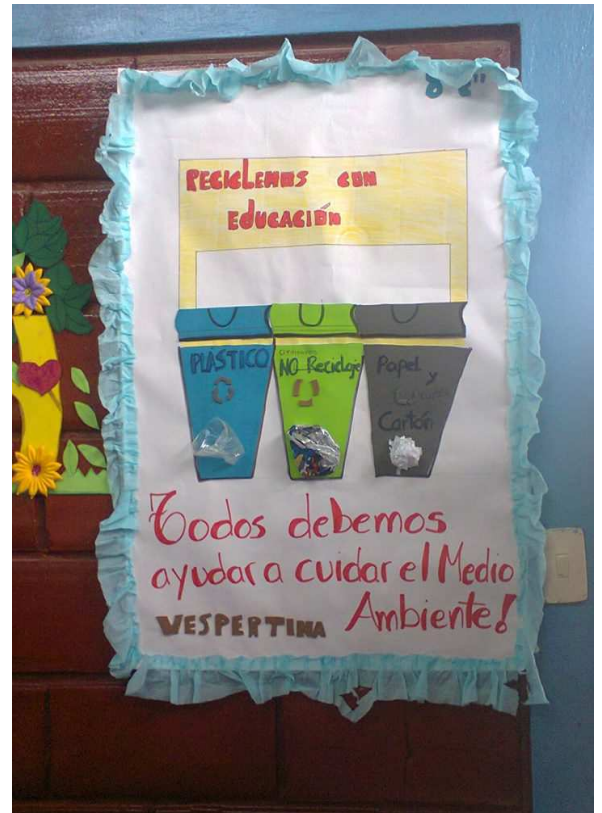 RECICLEMOS CON
EDUCACIÓN
PLASTICO
NO Reciclaje
Papel
y
Cartón
Todos debemos
ayudar a cuidar el Medio
Ambiente!
VESPERTINA